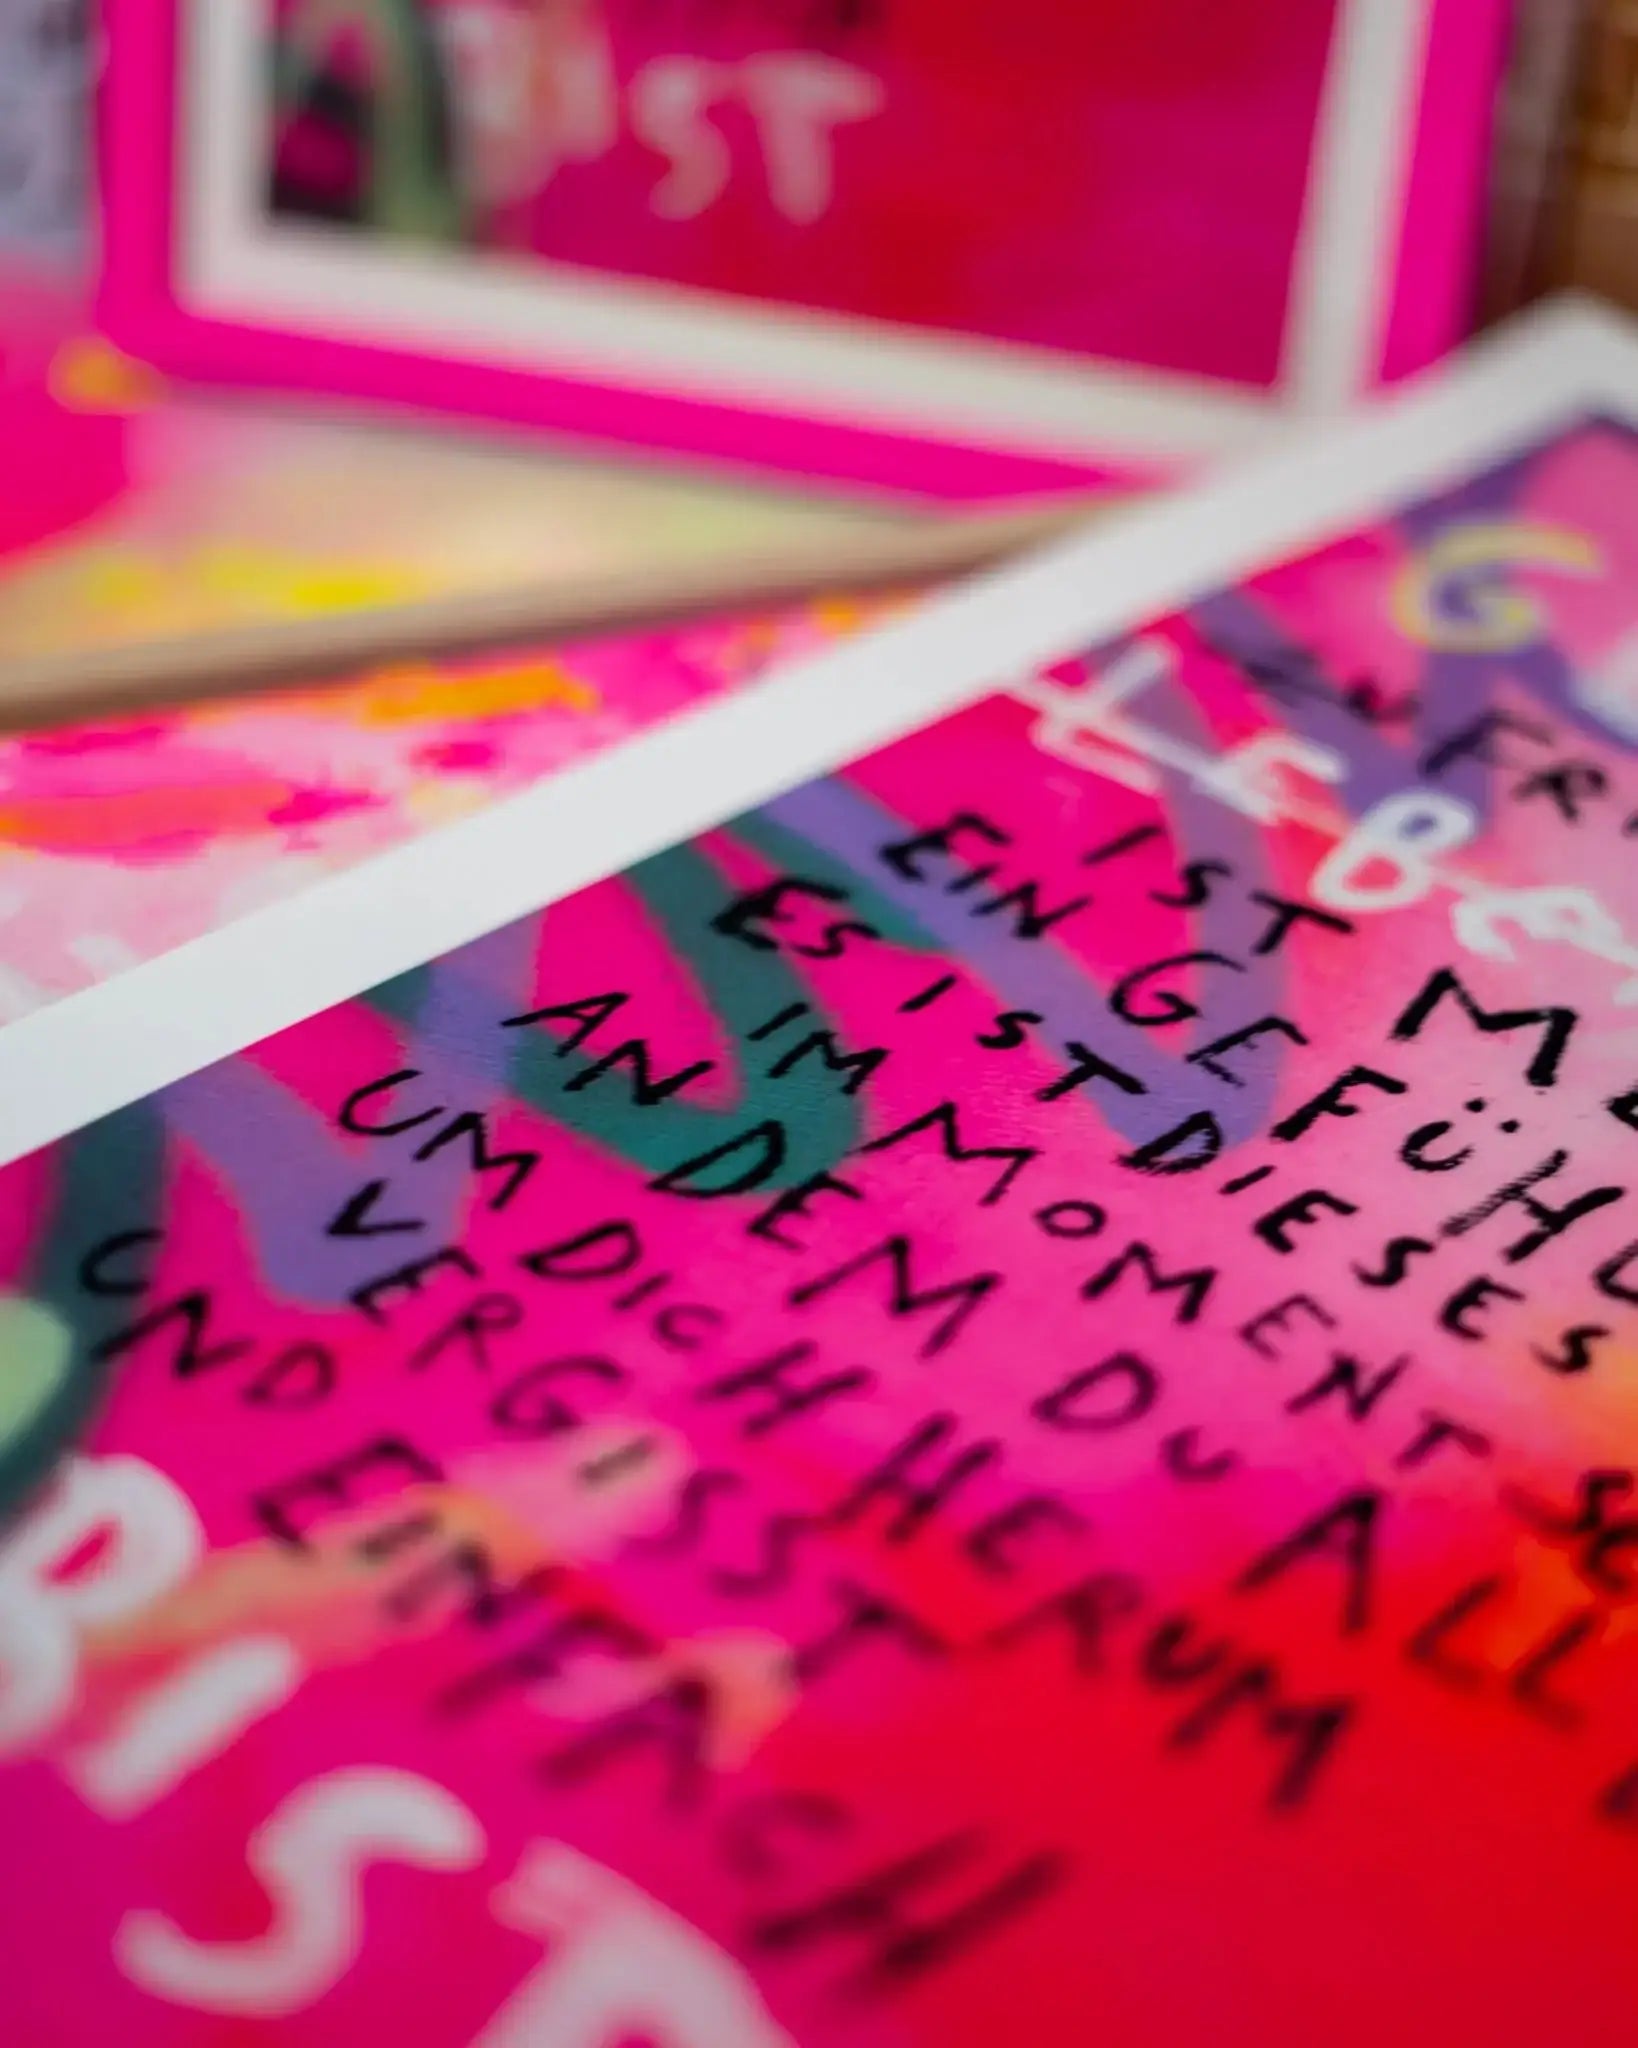 IST
LEBEN
IST ME
EIN GEFÜHL
ES IST DIESES
IM MOMENT
AN DEM DU ALL
UM DICH HERUM
VERGISST
UND EINFACH
BIST